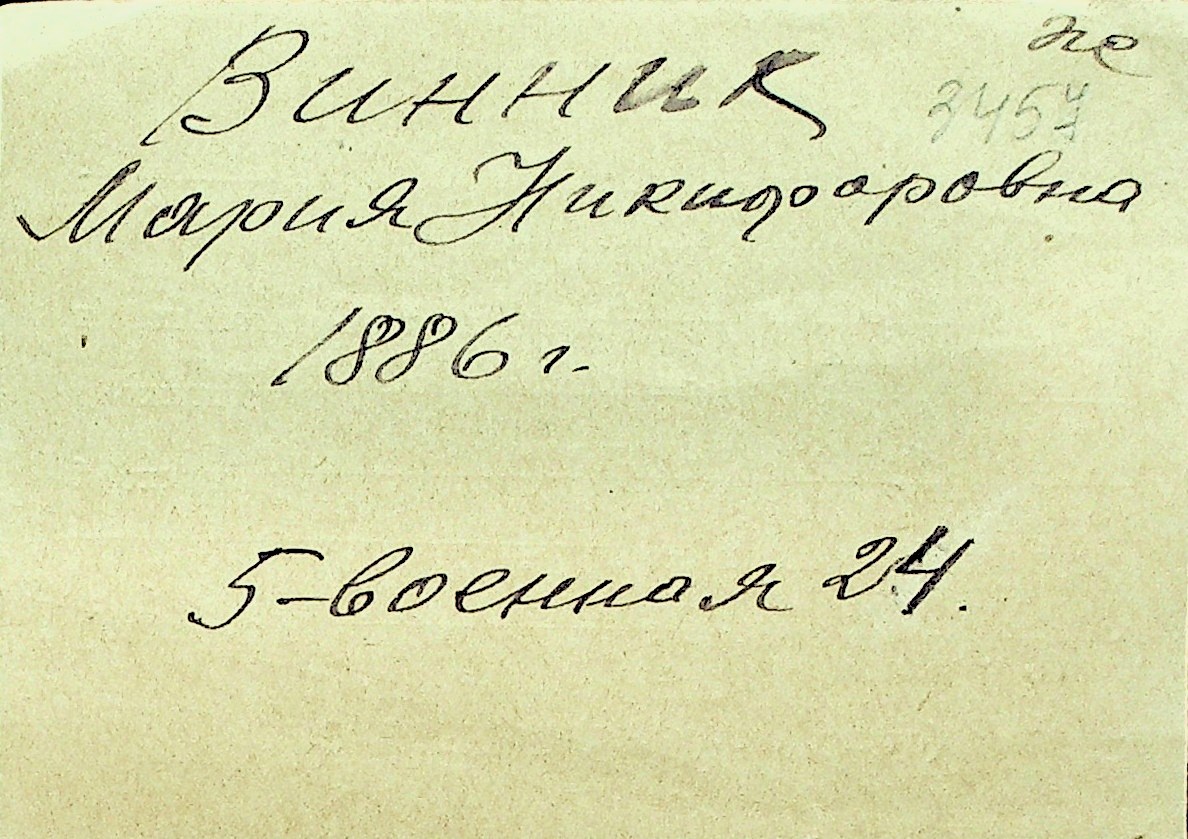 Винник
Мария Никифоровна
1886 г.
5-военная 24.